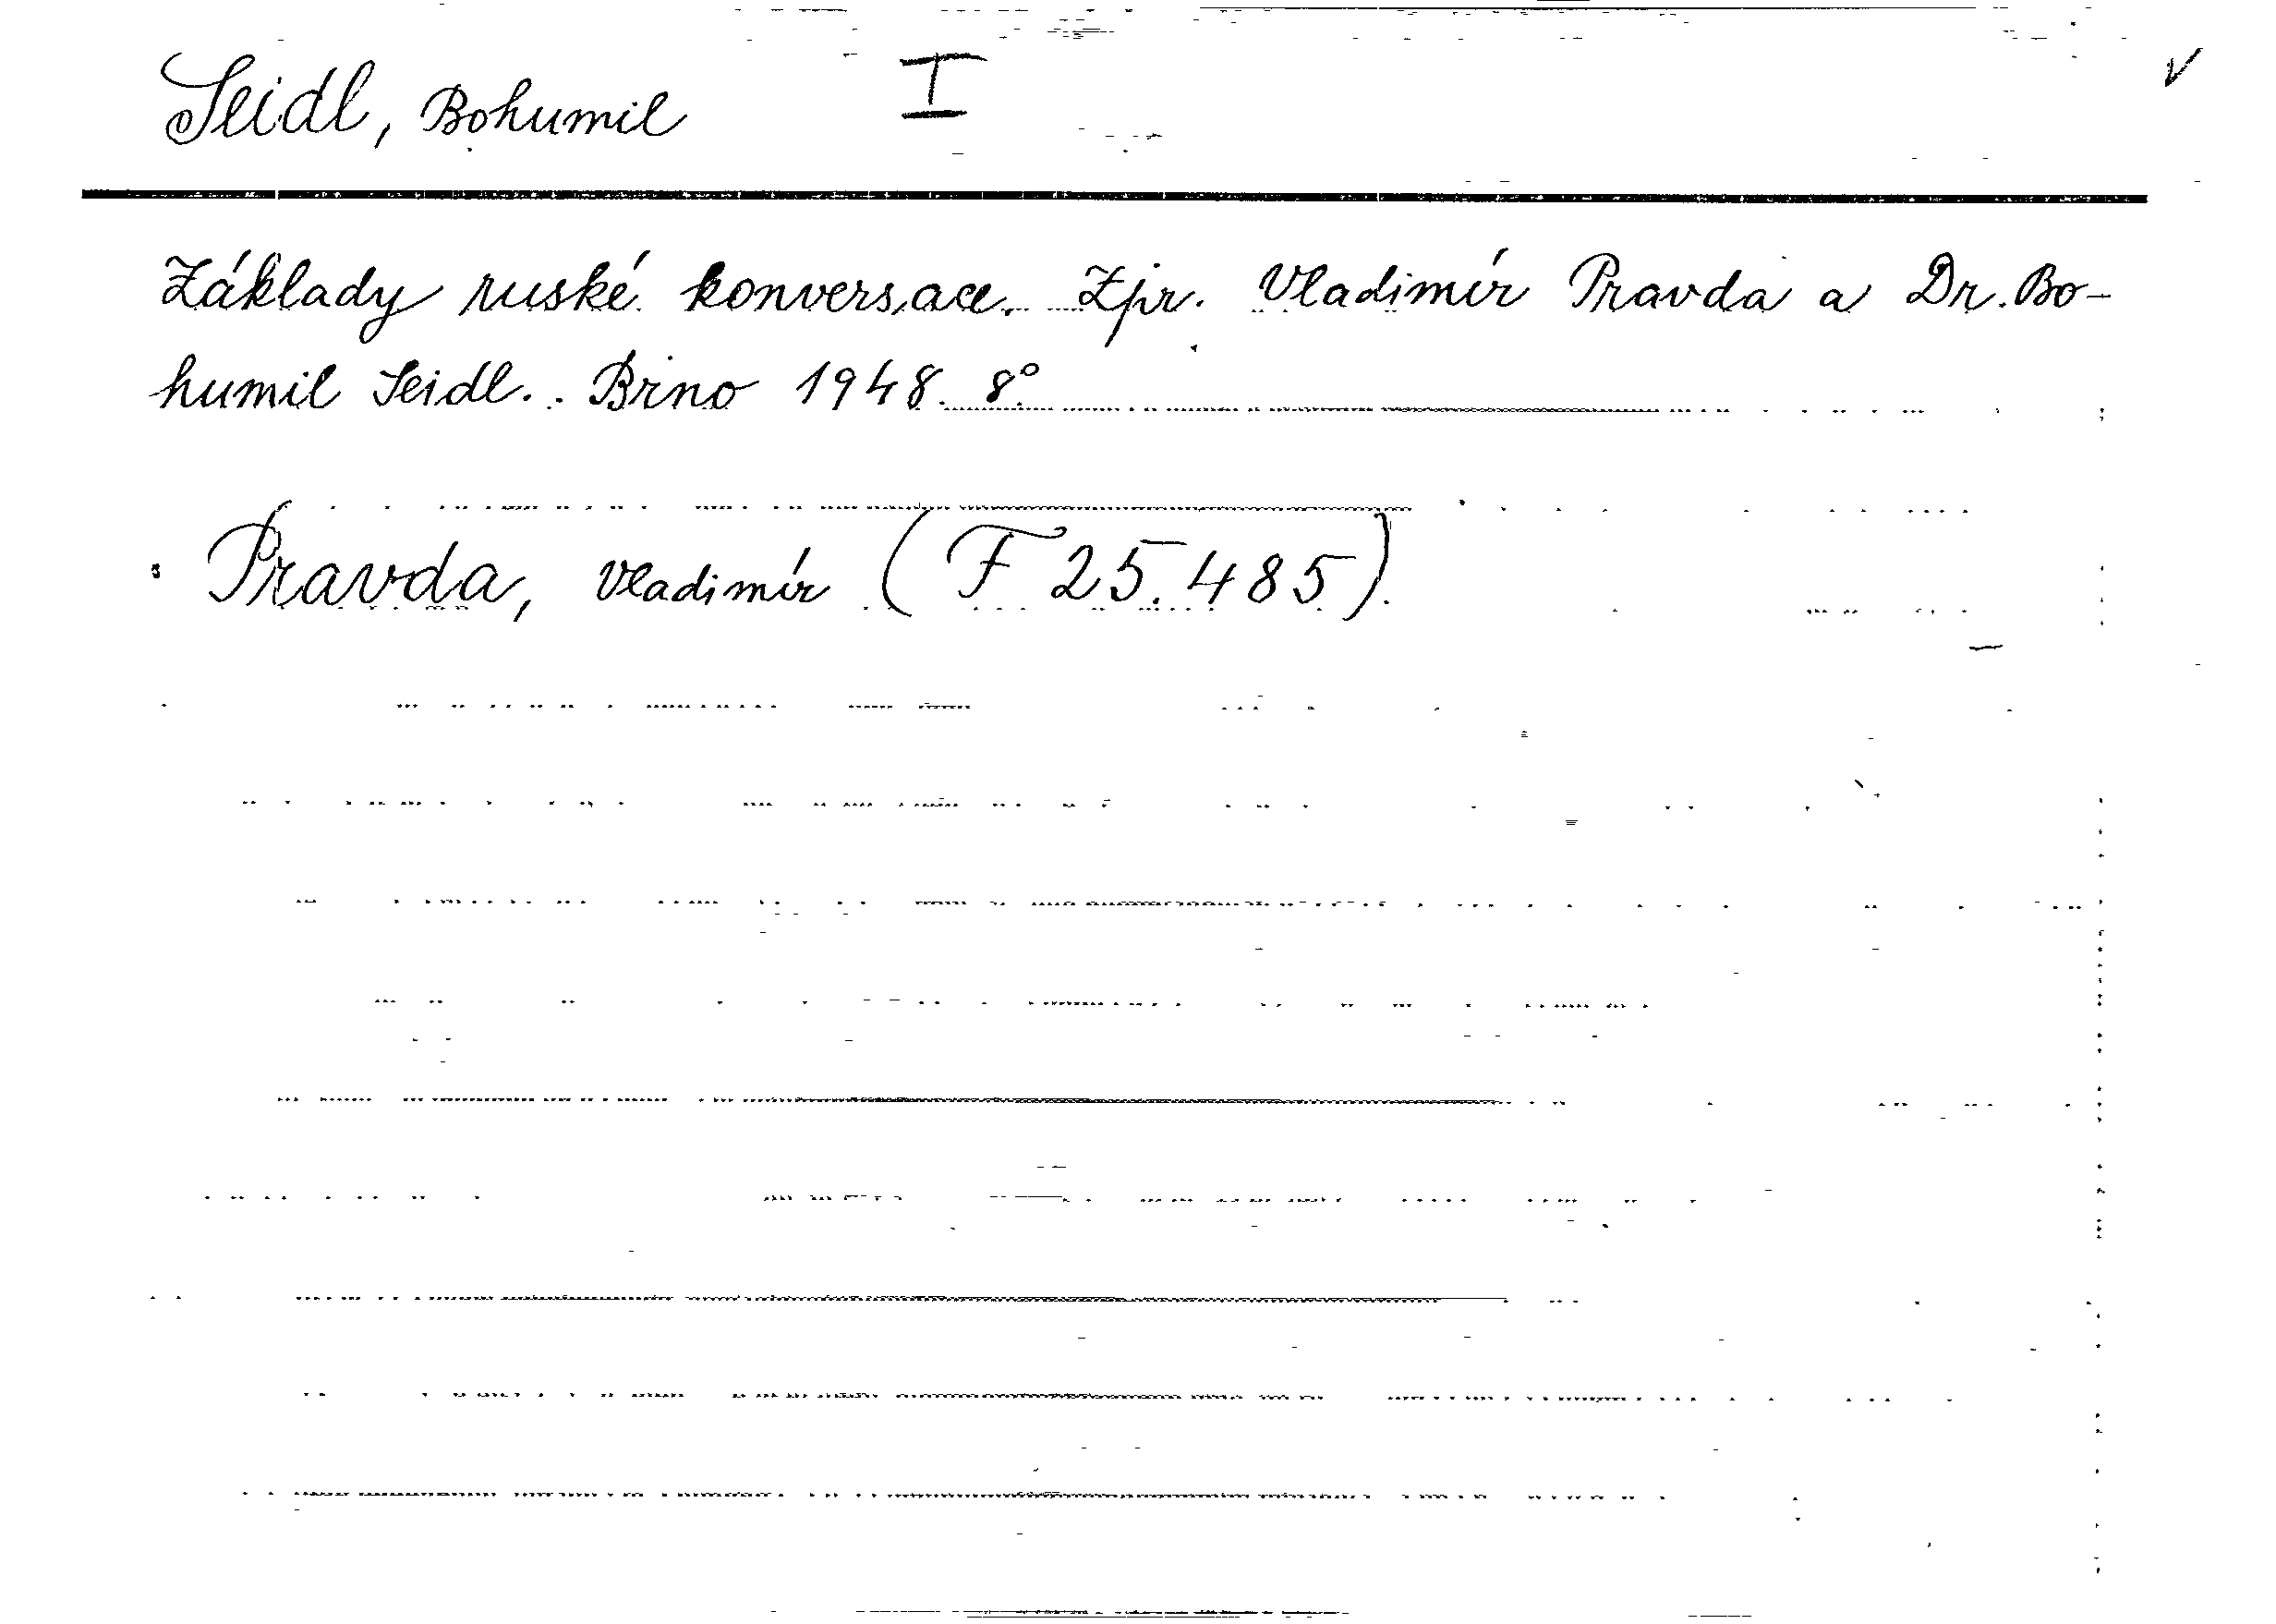 Seidl, Bohumil I
Základy ruské konversace. Zpr. Vladimír Pravda a Dr. Bo-
humil Seidl. Brno 1948. 8°
Pravda, Vladimír (F 25.485)